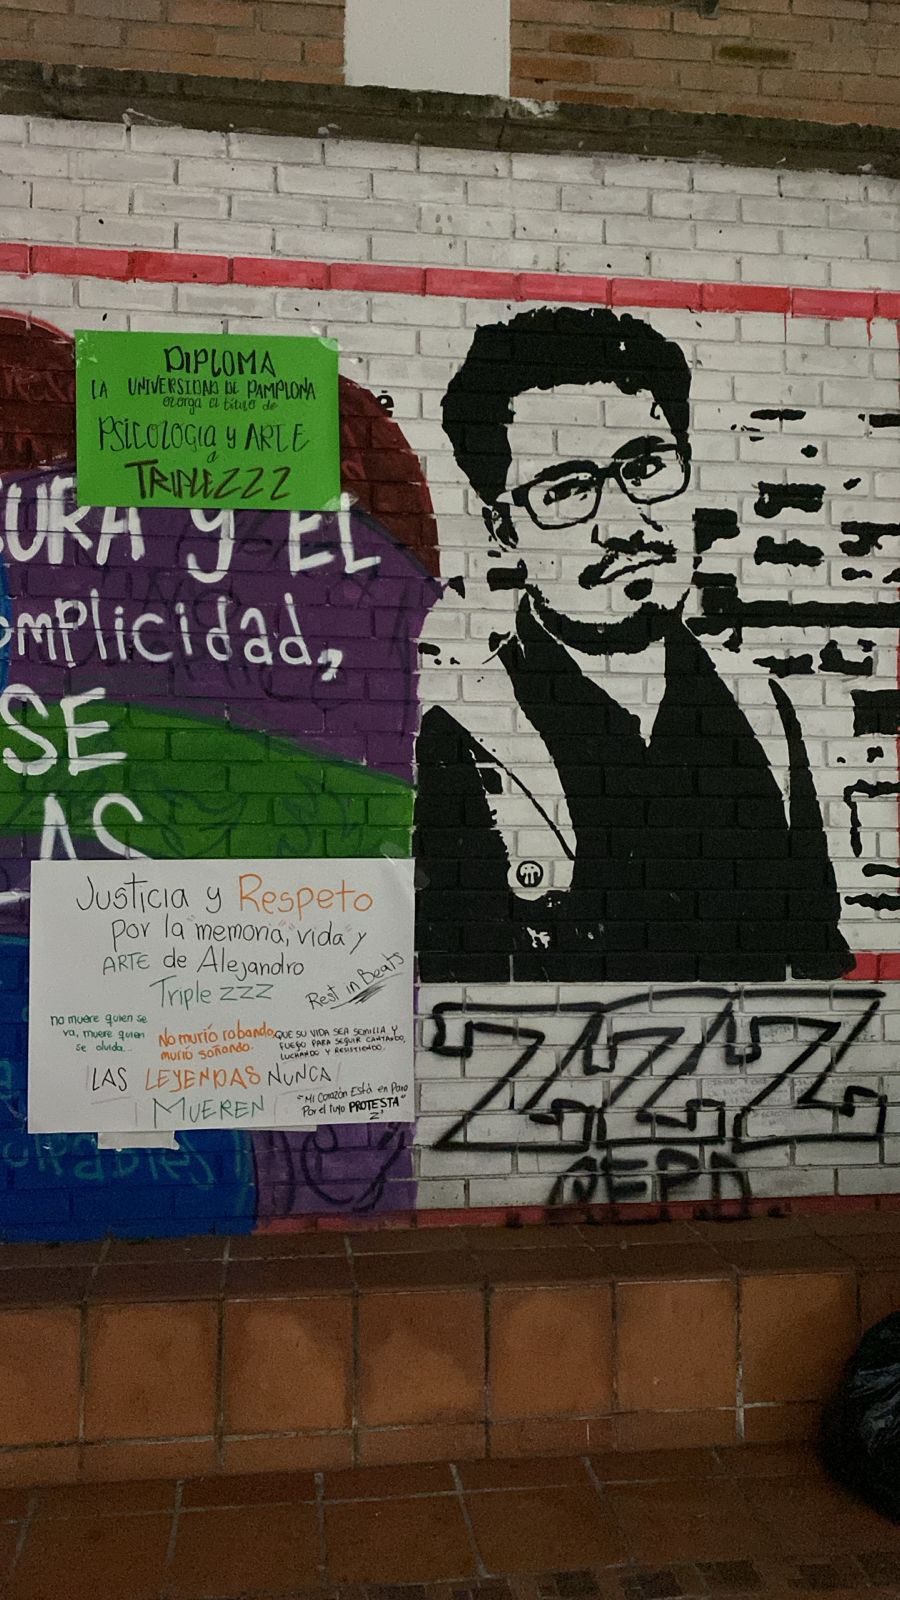 DIPLOMA
LA UNIVERSIDAD DE PAMPLONA
otorga el titulo de
PSICOLOGIA y ARTE
a
TRIPLEZZZ
URA y EL
mplicidad,
SE
AS
Justicia y Respeto
por la "memoria," vida" y
ARTE de Alejandro
Triple ZZZ
Rest in Beats
no muere quien se
va, muere quien
se olvida...
No murió robando,
murió soñando.
QUE SU VIDA SEA SEMILLA Y
FUEGO PARA SEGUIR CANTANDO,
LUCHANDO Y RESISTIENDO.
LAS LEYENDAS NUNCA
MUEREN
"Mi Corazón Está en Paro
Por el tuyo PROTESTA"
Z'
ZZZ
QEPD